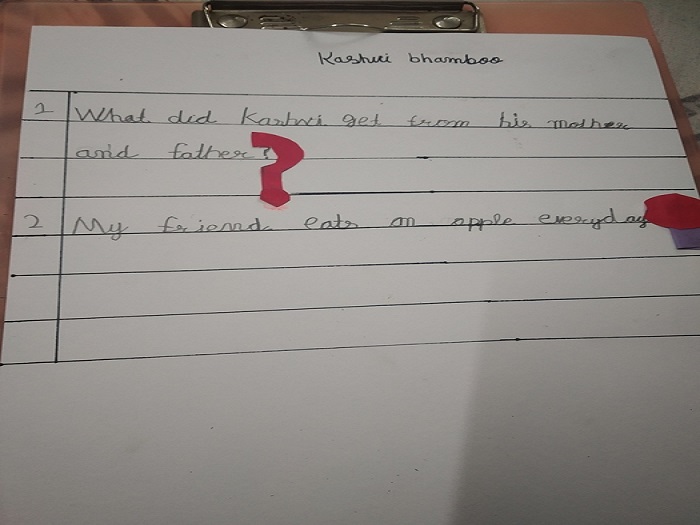 Kashvi bhamboo
1 What did Kashvi get from his mother
and father?
2 My friend eats an apple everyday